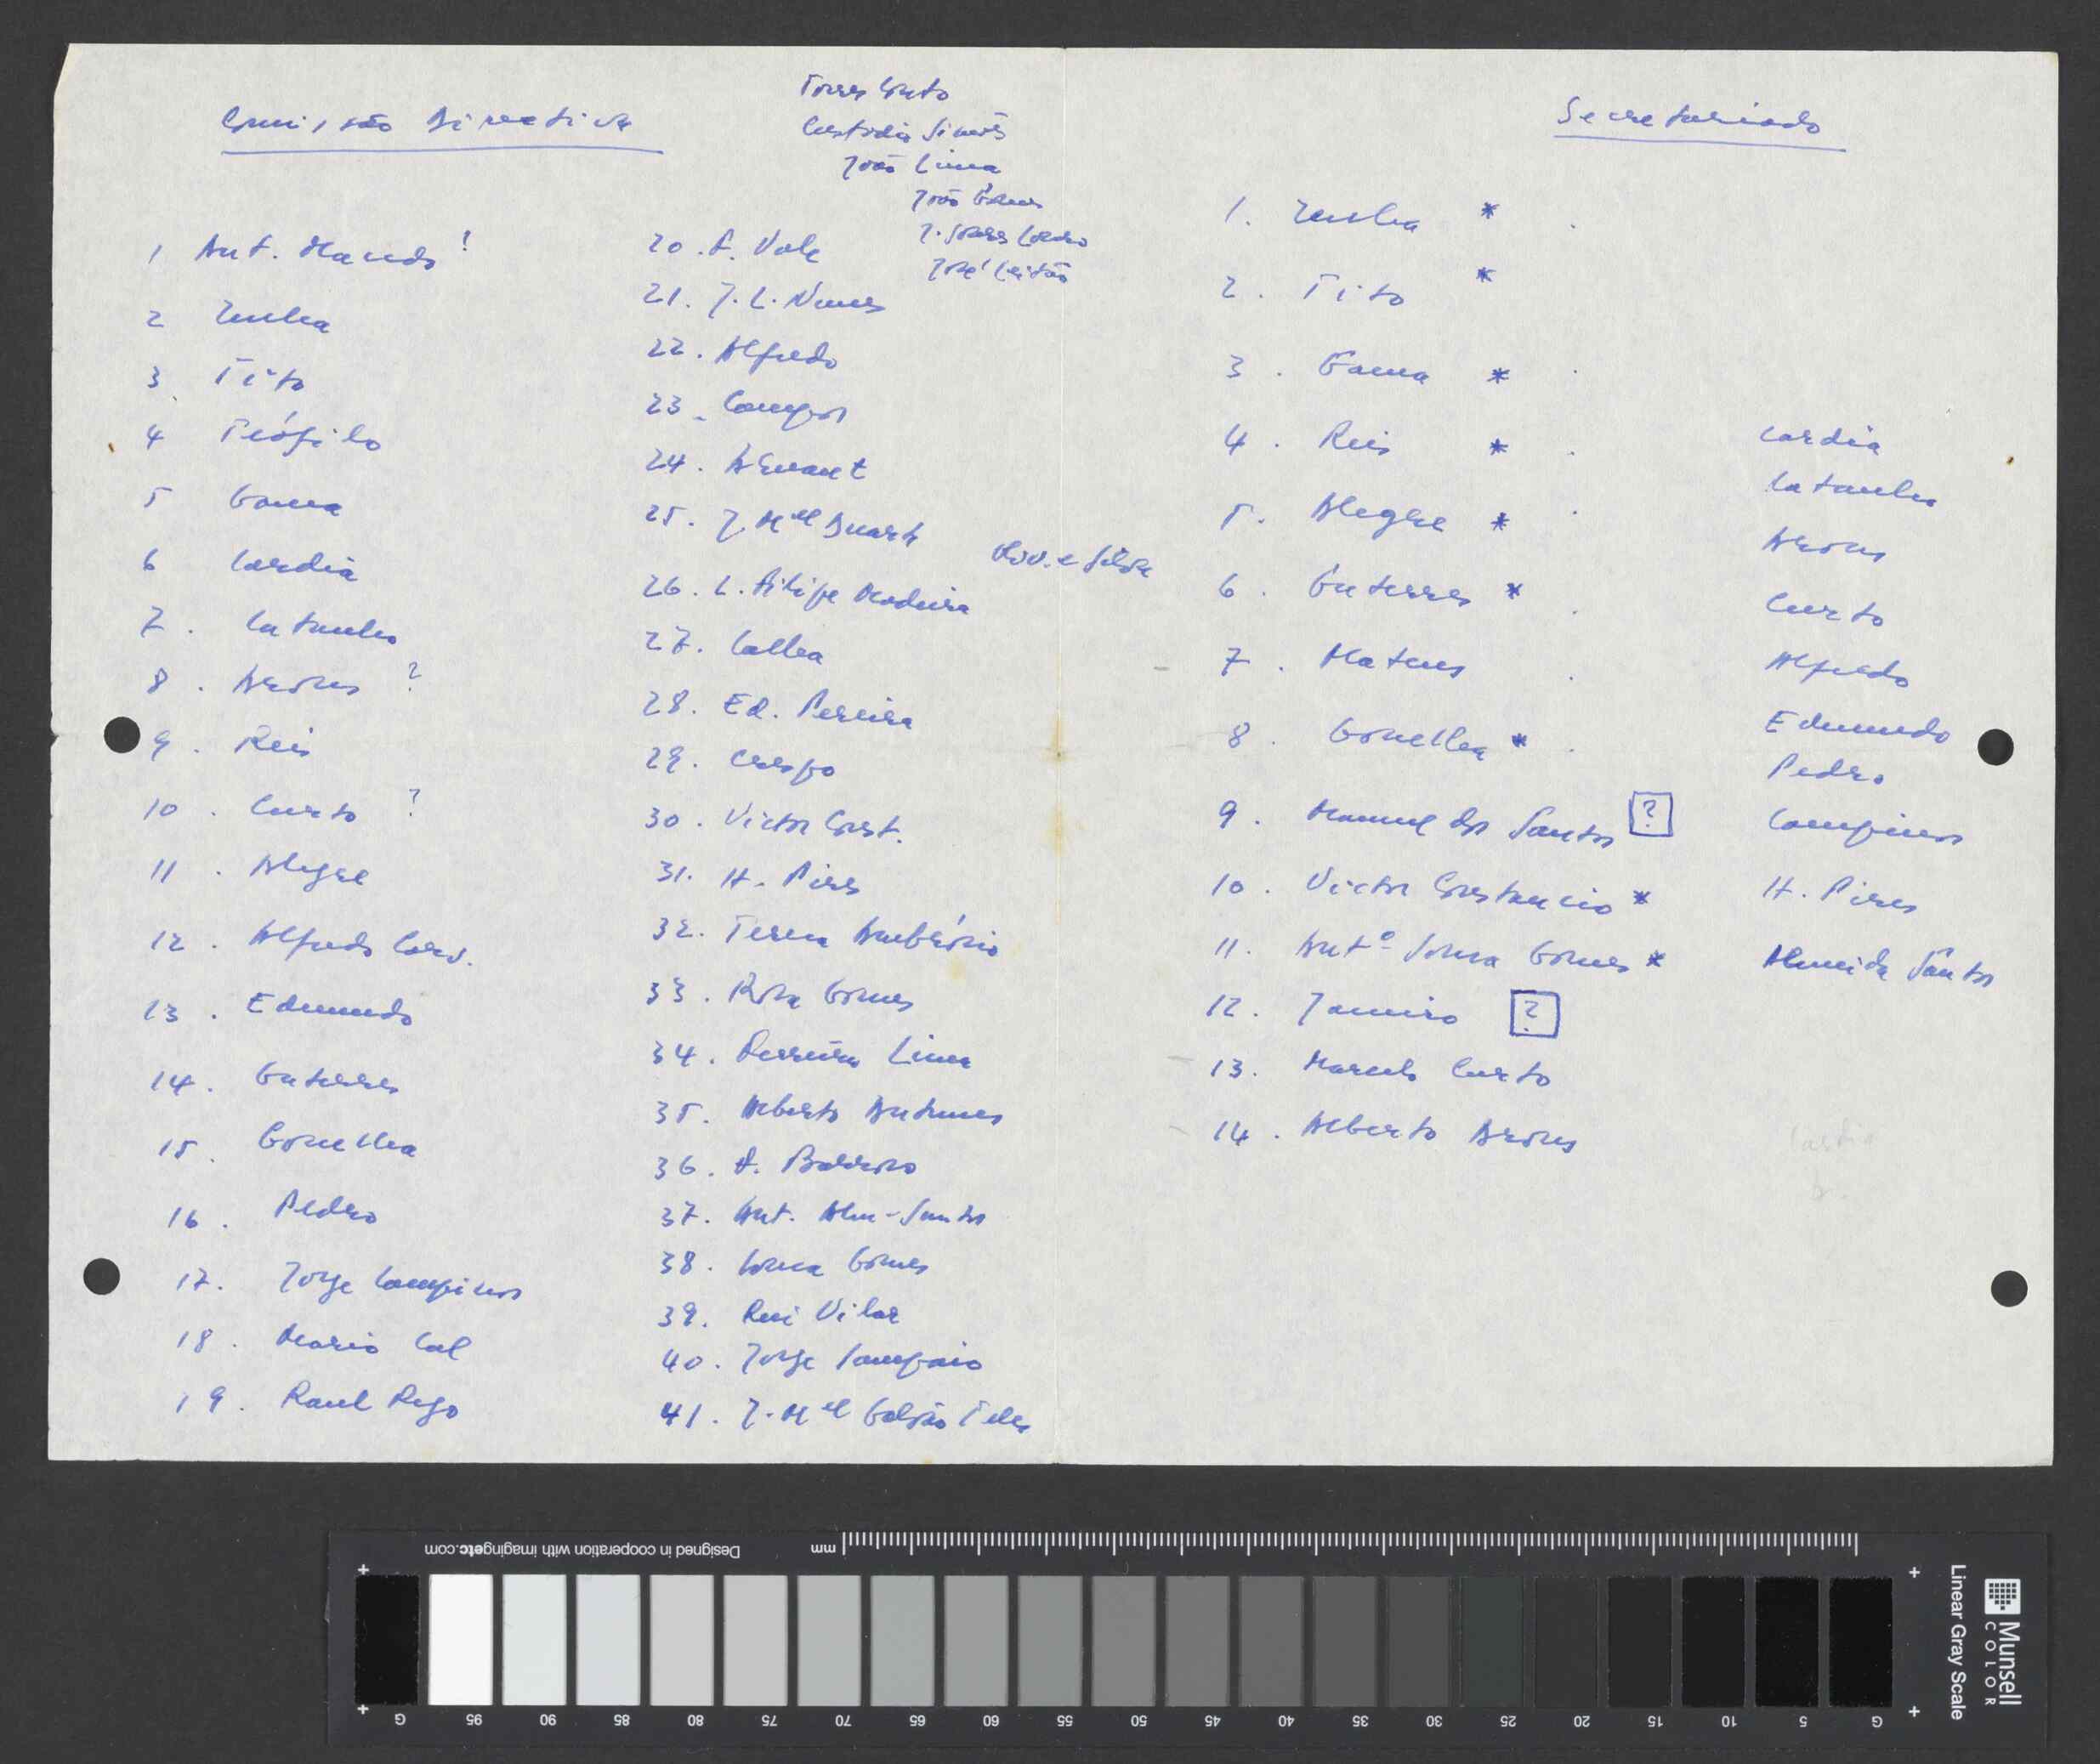 Comissão Directiva
1 Ant. Macedo !
2 Zenha
3 Tito
4 Teófilo
5 Gama
6 Cardia
7. Catanho
8. Arons ?
9. Reis
10. Curto ?
11. Alegre
12. Alfredo Carv.
13. Edmundo
14. Guterres
15. Gonelha
16. Pedro
17. Jorge Campinos
18. Mario Cal
19. Raul Rego
Torres Couto
Custodio Simões
João Lima
João Gomes
José Leitão
20. F. Vale
21. J. L. Nunes
22. Alfredo
23. Campos
24.
25. J. Mel Duarte
26. L. Filipe Madeira
27. Calha
28. Ed. Pereira
29. Crespo
30. Victor Const.
31. H. Pires
32. Teresa Ambrósio
33. Gomes
34. Ferreira Lima
35. Alberto Antunes
36. A. Barroso
37. Ant. Alm-Santos
38. Sousa Gomes
39. Rui Vilar
40. Jorge Sampaio
41. J. Mel Galvão Teles
Secretariado
1. Zenha *
2. Tito *
3. Gama *
4. Reis *
5. Alegre *
6. Guterres *
7. Mateus
8. Gonelha *
9. Manuel dos Santos ?
10. Victor Constancio *
11. Antº Sousa Gomes *
12. Janeiro ?
13. Marcelo Curto
14. Alberto Arons
Cardia
Catanho
Arons
Curto
Alfredo
Edmundo
Pedro
Campinos
H. Pires
Almeida Santos
Cardia
Designed in cooperation with imagingetc.com
mm
G 95 90 85 80 75 70 65 60 55 50 45 40 35 30 25 20 15 10 5 G
Munsell
COLOR
Linear Gray Scale